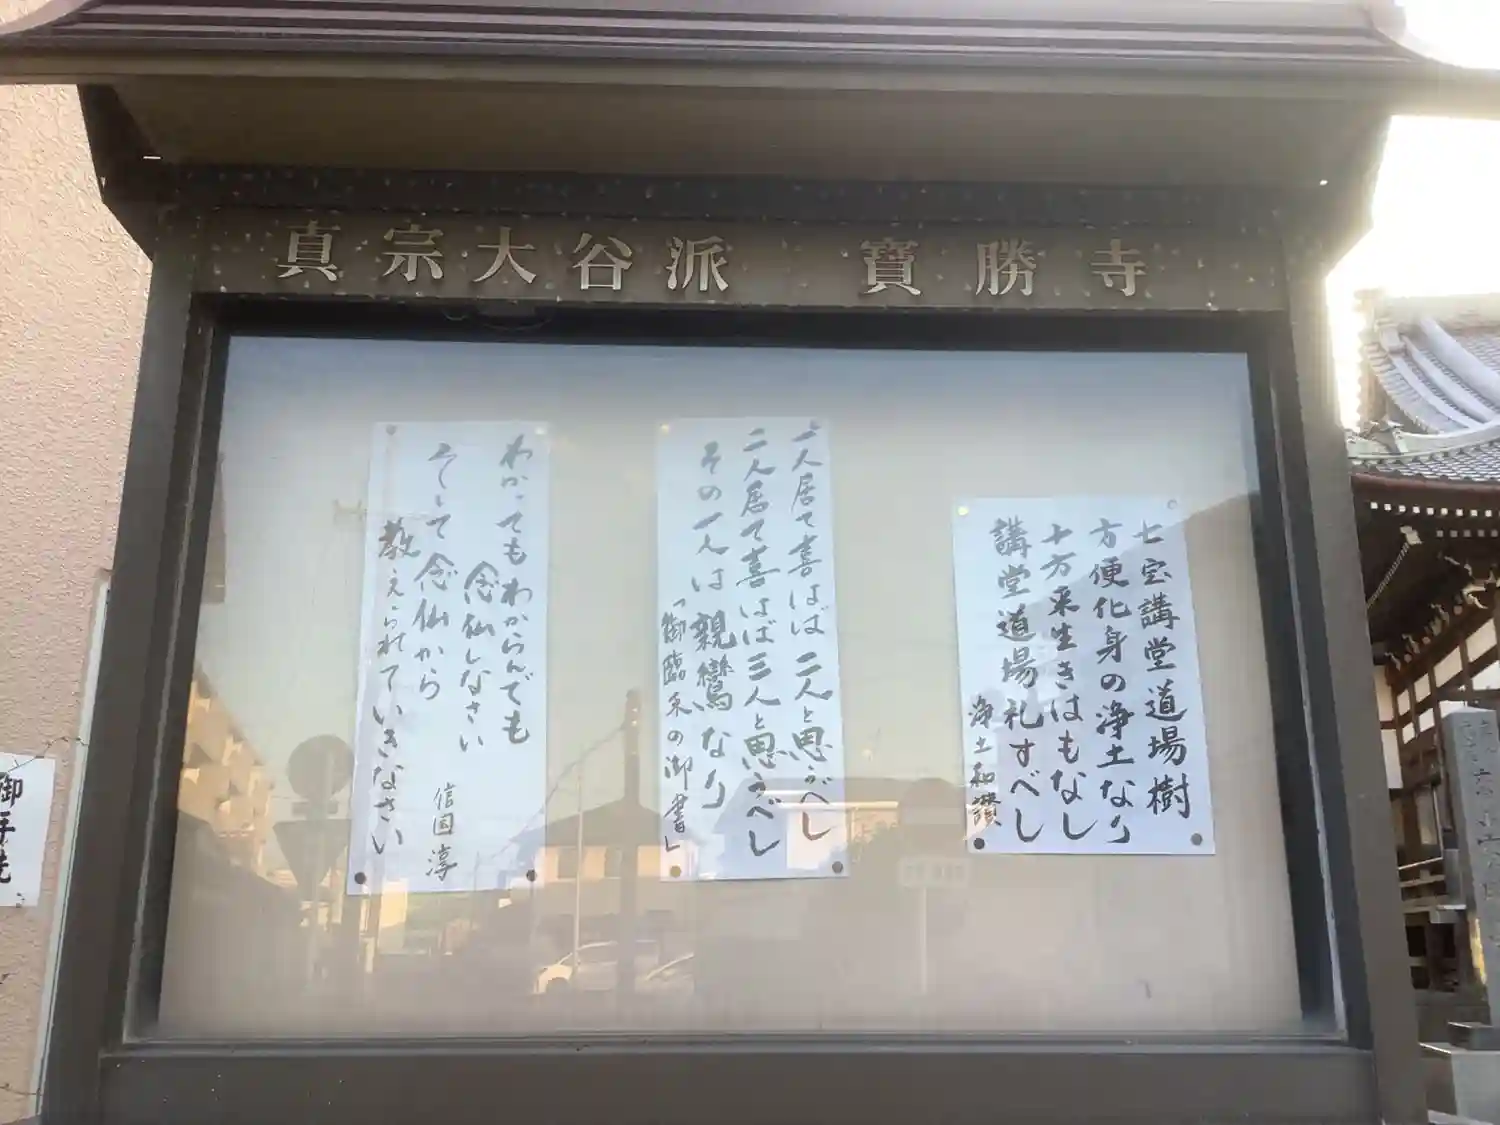 真宗大谷派 寶勝寺
七宝講堂道場樹
方便化身の浄土なり
十方来生きはもなし
講堂道場礼すべし
浄土和讃
一人居て喜はば二人と思うべし
二人居て喜はば三人と思うべし
その一人は親鸞なり
「御臨末の御書」
わかってもわからんでも
念仏しなさい
そして念仏から
教えられていきなさい
信国淳
御手洗